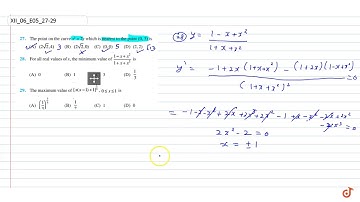 XII_06_E05_27-29
27. The point on the curve
(A) (2√2, 4) 3 (B) (2√2, 0) (C) (0, 0) 5 (D) (2, 2) √13
28. For all real values of x, the minimum value of (1 - x + x²)/(1 + x + x²) is
(A) 0 (B) 1 (C) 3 (D) 1/3
29. The maximum value of [x(x-1)+1]^(1/3), 0 ≤ x ≤ 1 is
(A) (1/3)^(1/3) (B) 1/2 (C) 1 (D) 0
28 y = (1 - x + x²)/(1 + x + x²)
y' = (-1 + 2x (1+x+x²) - (1+2x)(1-x+x²))/(1+x+x²)² = 0
= -1 - x - x² + 2x + 2x² + 2x³ - 1 + x - x² - 2x + 2x² - 2x³ = 0
2x² - 2 = 0
x = ±1